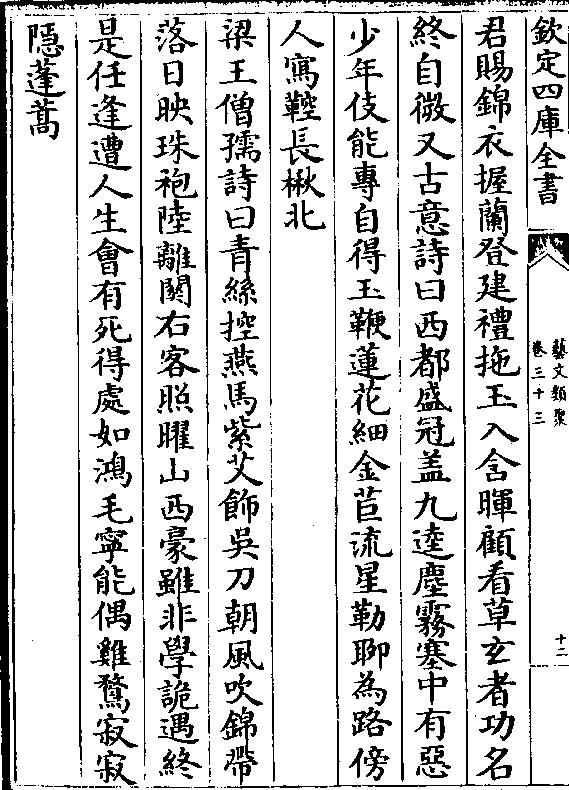 欽定四庫全書
藝文類聚
卷三十三
十二
君賜錦衣握蘭登建禮拖玉入含暉顧看草玄者功名
終自微又古意詩曰西都盛冠盖九逵塵霧塞中有惡
少年伎能專自得玉鞭蓮花細金苣流星勒聊為路傍
人寫鞚長楸北
梁王僧孺詩曰青絲控燕馬紫艾飾吳刀朝風吹錦帶
落日映珠袍陸離關右客照曜山西豪雖非學詭遇終
是任逢遭人生會有死得處如鴻毛寧能偶雞鶩寂寂
隱蓬蒿